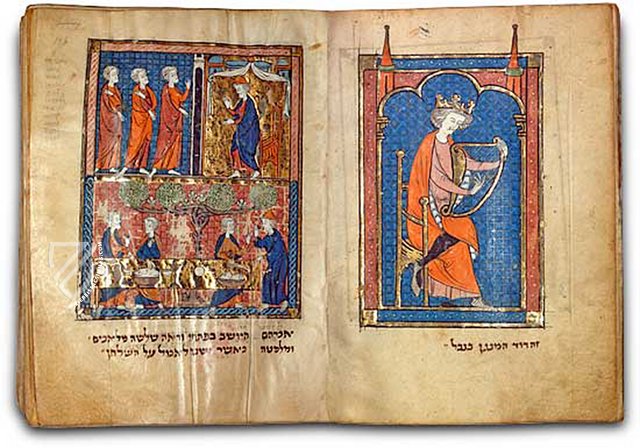 זה דוד המנגן בנבל
אברהם היושב בפתחו וראה שלשה מלאכים
ומלמטה כאשר ישבו לאכול על השלחן